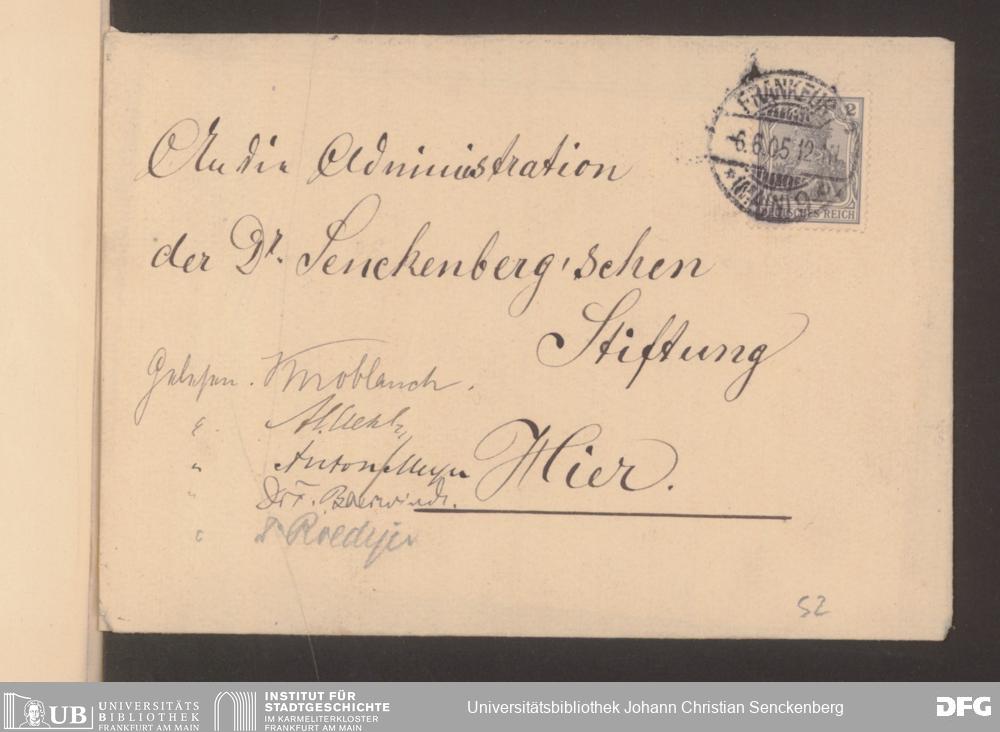 FRANKFURT
6.6.05.12-
(MAIN)
2
DEUTSCHES REICH
An die Administration
der Dr. Senckenberg'schen
Stiftung
Gelesen. Knoblauch.
" 
" Anton Meyer
" Dr F. Baerwindt.
" Dr Roediger
Hier.
52
UB UNIVERSITÄTS
BIBLIOTHEK
FRANKFURT AM MAIN
INSTITUT FÜR
STADTGESCHICHTE
IM KARMELITERKLOSTER
FRANKFURT AM MAIN
Universitätsbibliothek Johann Christian Senckenberg
DFG